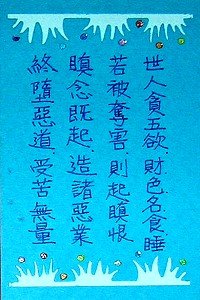 世人貪五欲，財色名食睡
若被奪害，則起瞋恨
瞋念既起，造諸惡業
終墮惡道，受苦無量